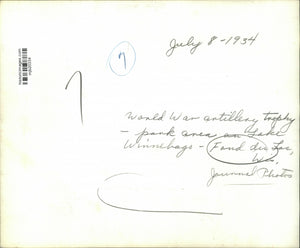 July 8-1934
7
World War artillery trophy
- park area on Lake
Winnebago - Fond du Lac,
Wis.
Journal Photos